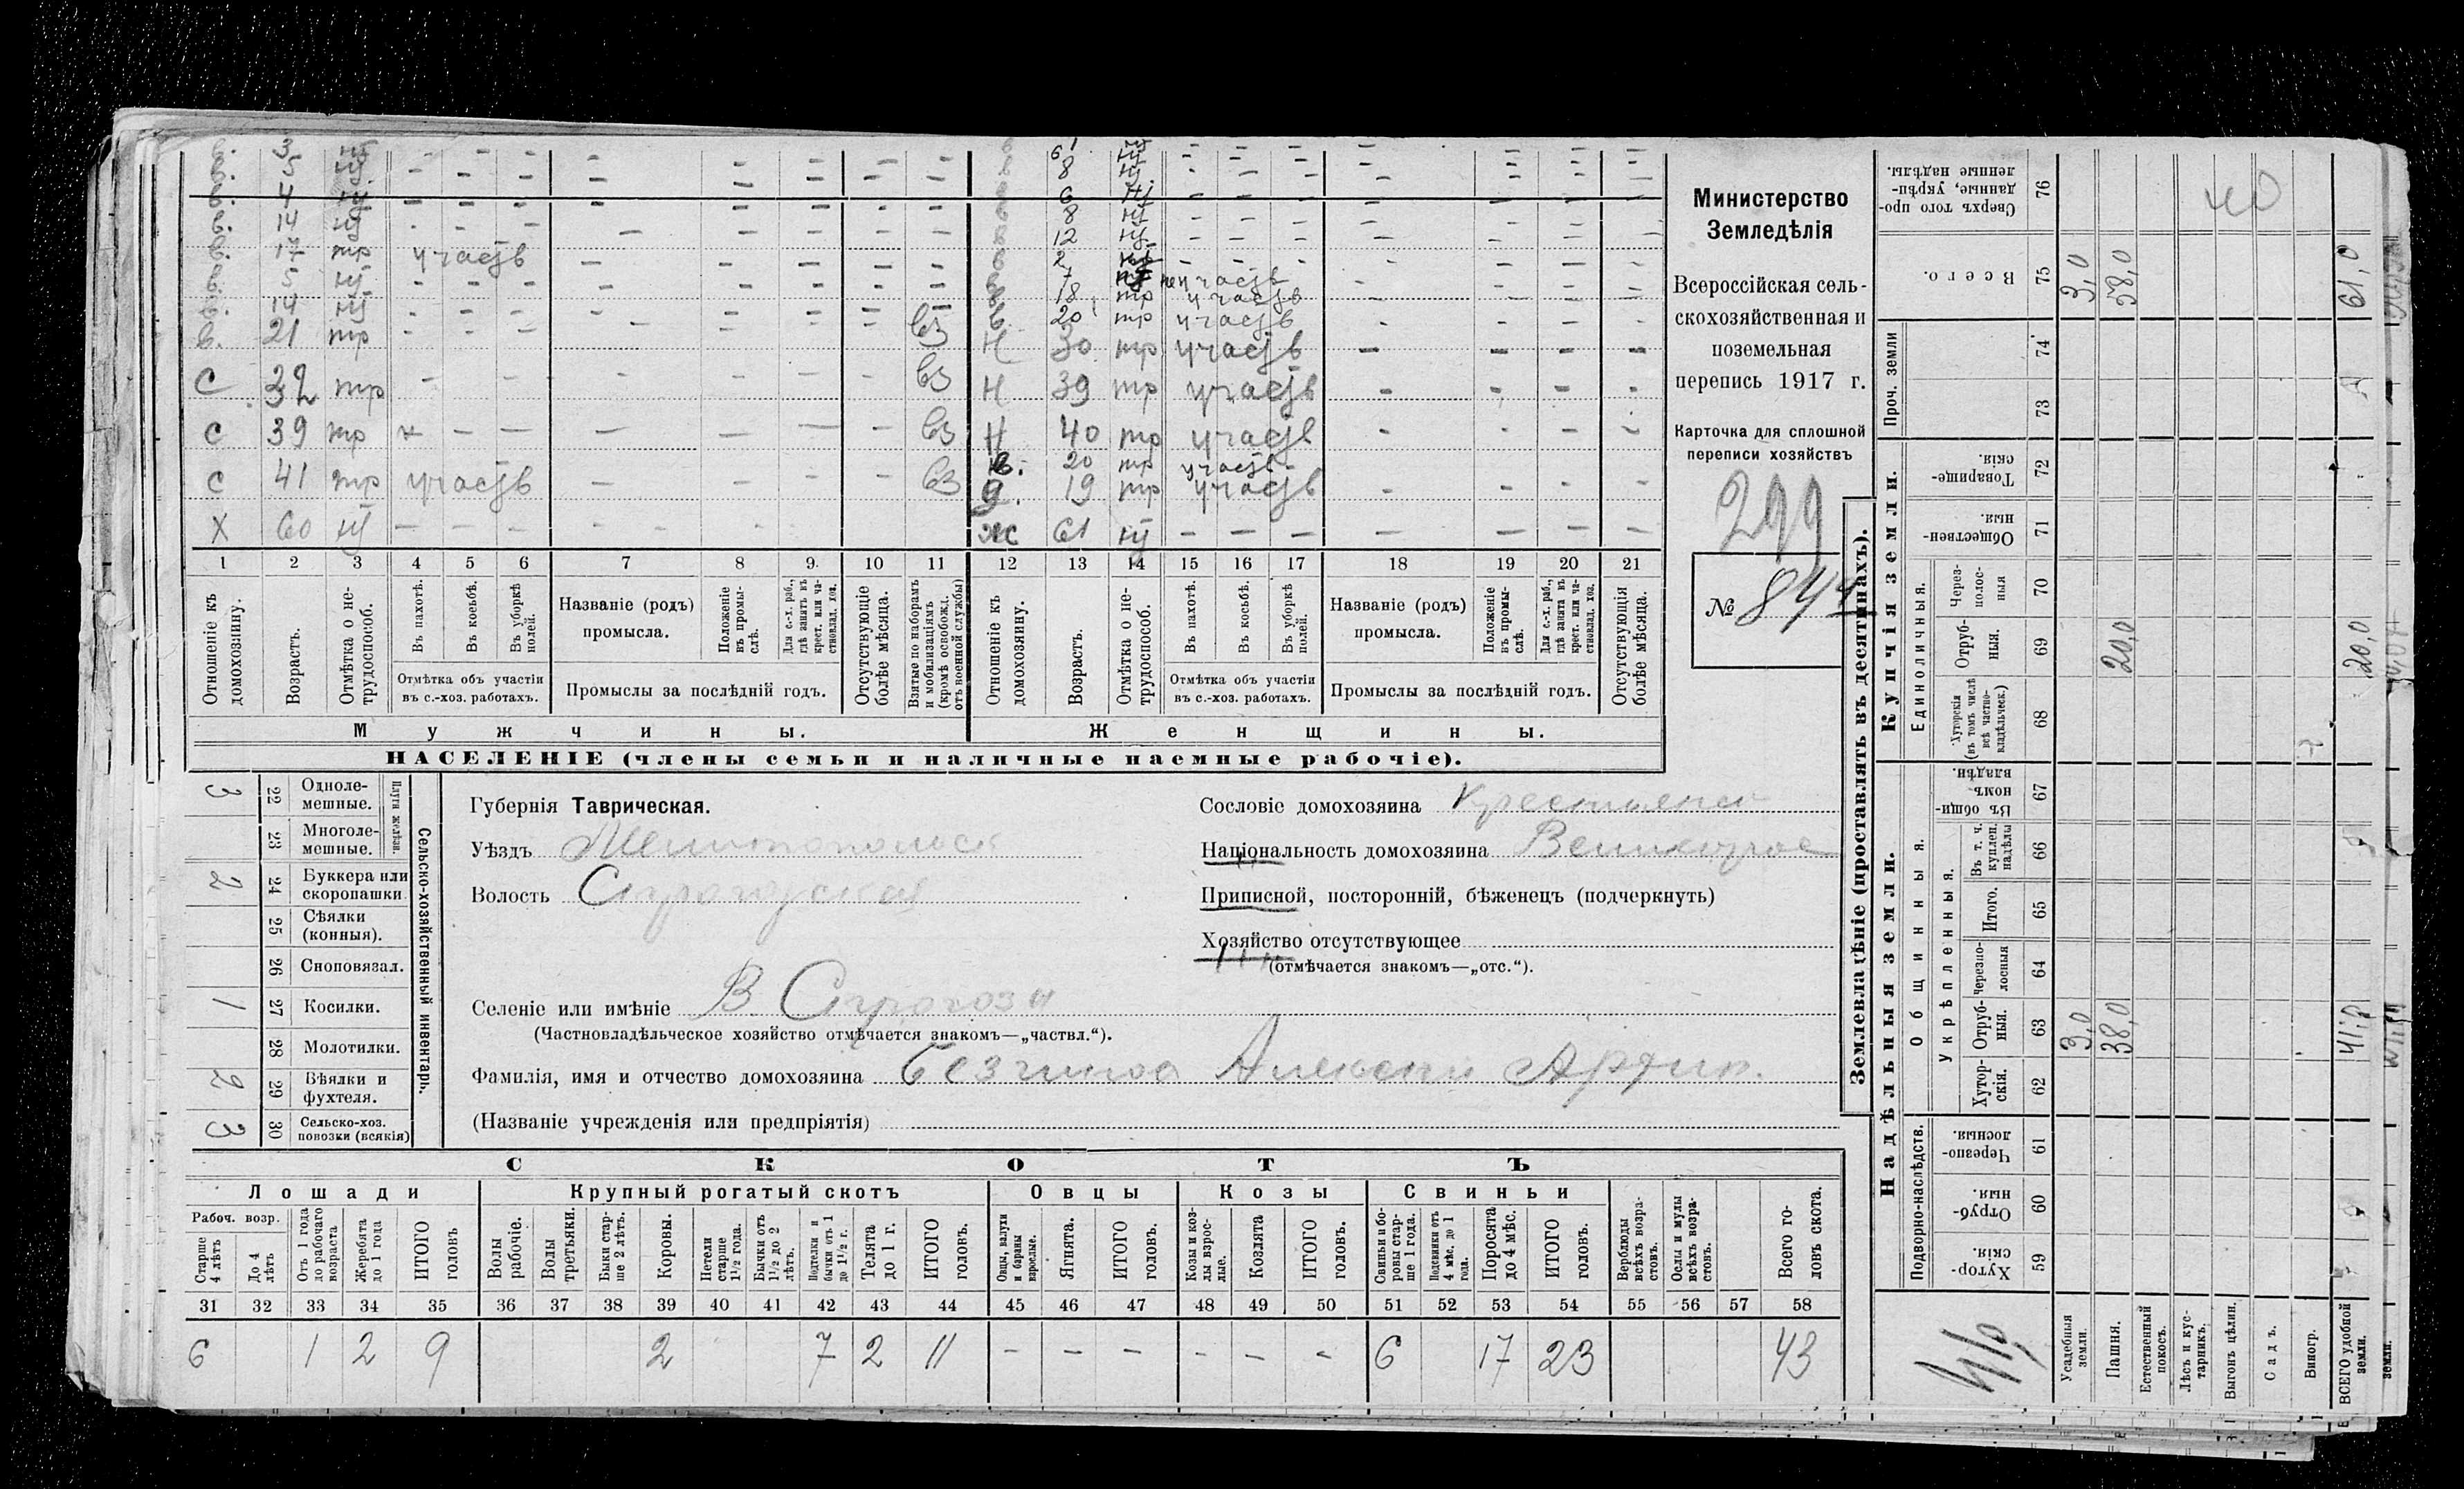 в. 3 нт – – – – – – – –
в. 5 нт – – – – – – – –
в. 4 нт – – – – – – – –
в. 14 нт – – – – – – – –
в. 17 тр участв – – – – –
в. 5 нт – – – – – – – –
в. 14 нт – – – – – – – –
в. 21 тр – – – – – – – вз
С 32 тр – – – – – – – вз
с 39 тр – – – – – – – вз
с 41 тр участв – – – – вз
х 60 нт – – – – – – – –
6 8 нт – – – – – – –
6 нт – – – – – – –
8 нт – – – – – – –
12 нт – – – – – – –
2 – – – – – – –
7 нт не участв – – – –
18 тр участв – – – –
20 тр участв – – – –
Н 30 тр участв – – – –
Н 39 тр участв – – – –
Н 40 тр участв – – – –
в. 20 тр участв
19 тр участв – – – –
ж 61 нт – – – – – – –
1 2 3 4 5 6 7 8 9 10 11 12 13 14 15 16 17 18 19 20 21
Отношеніе къ домохозяину.
Возрастъ.
Отмѣтка о не-трудоспособ.
Въ пахотѣ.
Въ косьбѣ.
Въ уборкѣ полей.
Отмѣтка объ участіи въ с.-хоз. работахъ.
Названіе (родъ) промысла.
Положеніе въ промы-слѣ.
Для с.-х. раб., гдѣ занятъ въ крест. или ча-стновлад. хоз.
Промыслы за послѣдній годъ.
Отсутствующіе болѣе мѣсяца.
Взятые по наборамъ и мобилизаціямъ (кромѣ освобожд. отъ военной службы)
Отношеніе къ домохозяину.
Возрастъ.
Отмѣтка о не-трудоспособ.
Въ пахотѣ.
Въ косьбѣ.
Въ уборкѣ полей.
Отмѣтка объ участіи въ с.-хоз. работахъ.
Названіе (родъ) промысла.
Положеніе въ промы-слѣ.
Для с.-х. раб., гдѣ занятъ въ крест. или ча-стновлад. хоз.
Промыслы за послѣдній годъ.
Отсутствующія болѣе мѣсяца.
Мужчины. Женщины.
НАСЕЛЕНІЕ (члены семьи и наличные наемные рабочіе).
Министерство
Земледѣлія
Всероссійская сель-
скохозяйственная и
поземельная
перепись 1917 г.
Карточка для сплошной
переписи хозяйствъ
299
№ 844
Сельско-хозяйственный инвентарь.
Плуги желѣзн.
3 22 Одноле-мешные.
23 Многоле-мешные.
2 24 Буккера или скоропашки
25 Сѣялки (конныя).
26 Сноповязал.
1 27 Косилки.
28 Молотилки.
2 29 Вѣялки и фухтеля.
3 30 Сельско-хоз. повозки (всякія)
Губернія Таврическая.
Уѣздъ Мелитопольск
Волость Строгозская
Селеніе или имѣніе В. Строгоза
(Частновладѣльческое хозяйство отмѣчается знакомъ—„частвл.“).
Фамилія, имя и отчество домохозяина Безчинов Алексей
(Названіе учрежденія или предпріятія)
Сословіе домохозяина Крестьянсн
Національность домохозяина Великорос
Приписной, посторонній, бѣженецъ (подчеркнуть)
Хозяйство отсутствующее
(отмѣчается знакомъ—„отс.“).
СКОТЪ
Лошади Крупный рогатый скотъ Овцы Козы Свиньи
Рабоч. возр.
Старше 4 лѣтъ
До 4 лѣтъ
Отъ 1 года до рабочаго возраста
Жеребята до 1 года
ИТОГО головъ
Волы рабочіе.
Волы третьяки.
Быки стар-ше 2 лѣтъ.
Коровы.
Нетели старше 1½ года.
Бычки отъ 1½ до 2 лѣтъ.
Подтелки и бычки отъ 1 до 1½ г.
Телята до 1 г.
ИТОГО головъ.
Овцы, валухи и бараны взрослые.
Ягнята.
ИТОГО головъ.
Козы и коз-лы взрос-лые.
Козлята
ИТОГО головъ.
Свиньи и бо-ровы стар-ше 1 года.
Подсвинки отъ 4 мѣс. до 1 года.
Поросята до 4 мѣс.
ИТОГО головъ.
Верблюды всѣхъ возра-стовъ.
Ослы и мулы всѣхъ возра-стовъ.
Всего го-ловъ скота.
31 32 33 34 35 36 37 38 39 40 41 42 43 44 45 46 47 48 49 50 51 52 53 54 55 56 57 58
6 1 2 9 2 7 2 11 – – – – – – 6 17 23 43
Землевладѣніе (проставлять въ десятинахъ).
Надѣльныя земли. Купчія земли. Проч. земли
Подворно-наслѣдств.
Общинныя.
Укрѣпленныя.
Единоличныя.
Хутор-скія. 59
Отруб-ныя. 60
Черезпо-лосныя. 61
Хутор-скія. 62
Отруб-ныя. 63
Черезпо-лосныя 64
Итого. 65
Въ т. ч. куплен. надѣлы 66
Въ общин-номъ владѣн. 67
Хуторскія (въ томъ числѣ всѣ частно-владѣльческ.) 68
Отруб-ныя. 69
Через-полос-ныя 70
Обществен-ныя. 71
Товарище-скія. 72
73
74
Всего. 75
Сверхъ того про-данные, укрѣп-ленные надѣлы. 76
Усадебныя земли. 3,0 3,0
Пашня. 38,0 20,0 58,0
Естественный покосъ.
Лѣсъ и кус-тарникъ.
Выгонъ цѣлин.
Садъ.
Виногр.
ВСЕГО удобной земли. 41,0 20,0 61,0
40
земли.